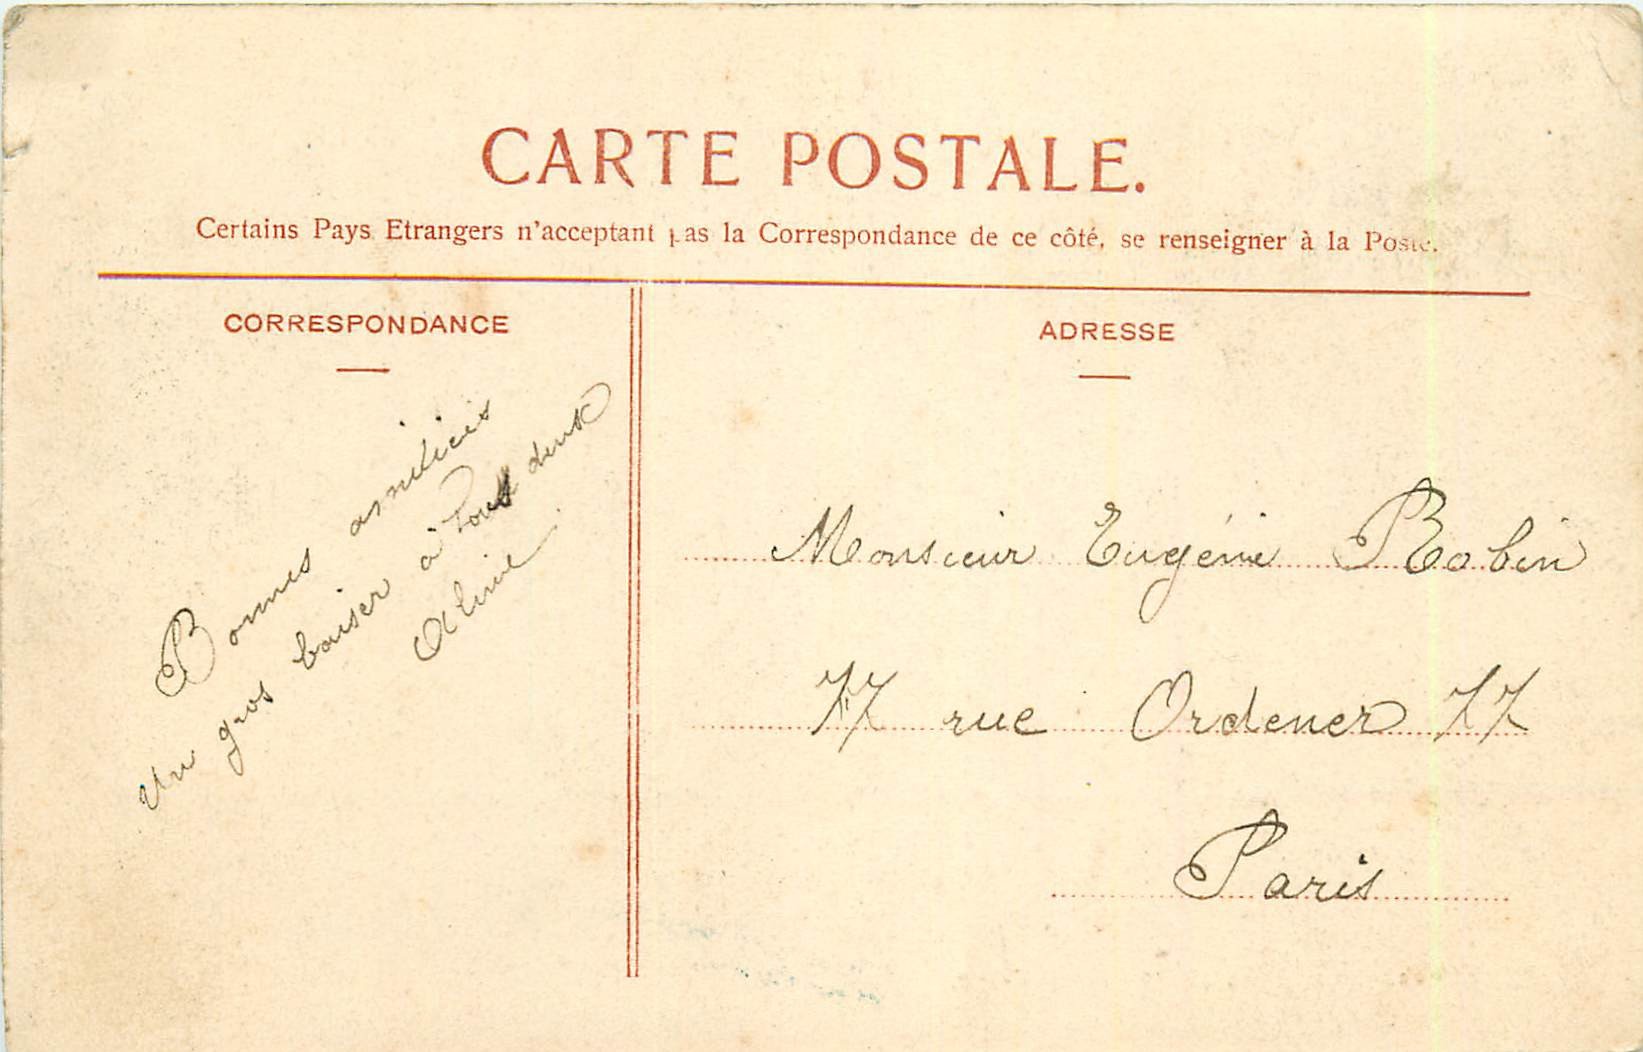 CARTE POSTALE.
Certains Pays Etrangers n'acceptant pas la Correspondance de ce côté, se renseigner à la Poste.
CORRESPONDANCE
Bonnes amitiées
un gros baiser à tous deux
Aline
ADRESSE
Monsieur Eugénie Robin
77 rue Ordener 77
Paris